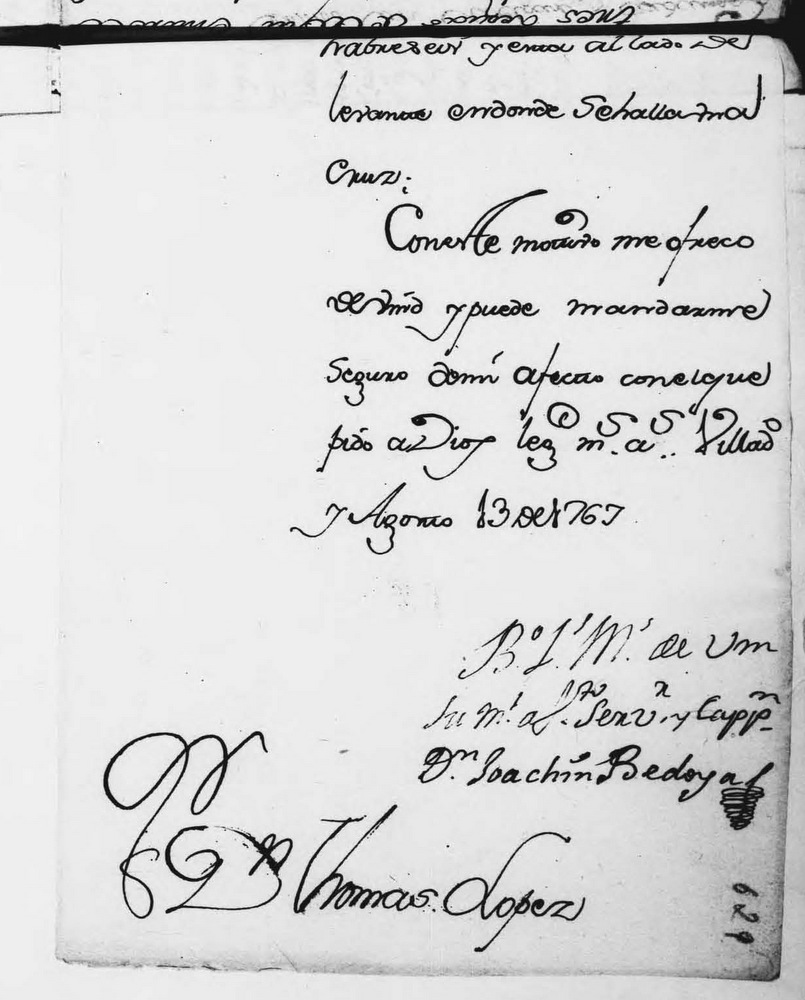 y esta al lado de
levante endonde Sehalla una
Cruz;
Coneste motivo me ofreco
de Vmd y puede mandarme
Seguro demi afecto conelque
pido a Dios leg.e m.s a.s Villad
y Agosto 13 de 1767
B.o L.s M.s de Vm
su m.s af.to Serv.r y Capp.n
D.n Joachin Bedoya
S.r D.n Thomas Lopez
629